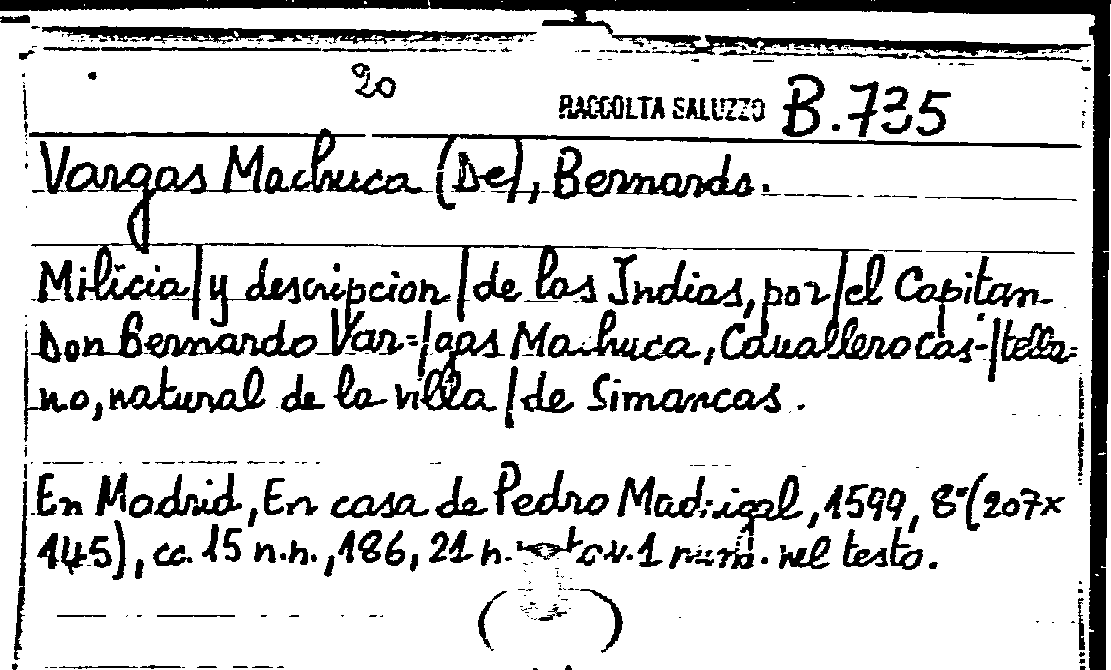 20
RACCOLTA SALUZZO B.735
Vargas Machuca (De), Bernardo.
Milicia | y descripcion | de las Indias, por | el Capitan
Don Bernardo Var= | gas Machuca, Cavallero Cas- | tella=
no, natural de la villa | de Simancas.
En Madrid, En casa de Pedro Madrigal, 1599, 8°(207x
145), cc. 15 n.n., 186, 21 n. tav. 1 num. nel testo.